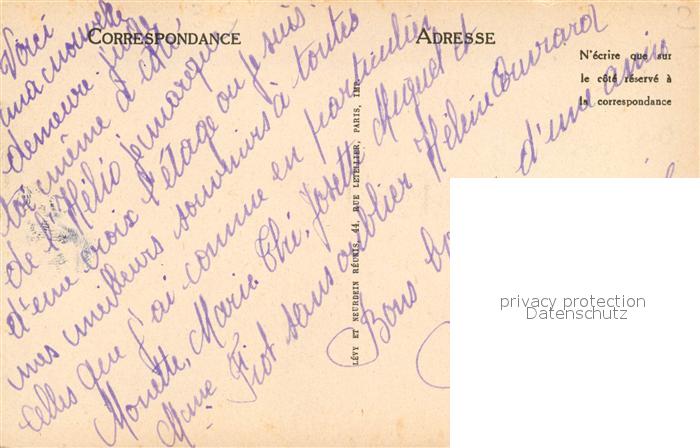 CORRESPONDANCE
ADRESSE
N'écrire que sur
le côté réservé à
la correspondance
LÉVY ET NEURDEIN RÉUNIS, 44, RUE LETELLIER, PARIS, IMP.
Voici
ma nouvelle
demeure
toi même à côté
de l'Hélio je marque
d'une croix l'étage ou je suis.
mes meilleurs souvenirs à toutes
celles que j'ai comme en particulier
Monette, Marie Thé, Josette Huguet et
Mme Fiot sans oublier Hélène Couvrard
Bons d'une amie
privacy protection
Datenschutz